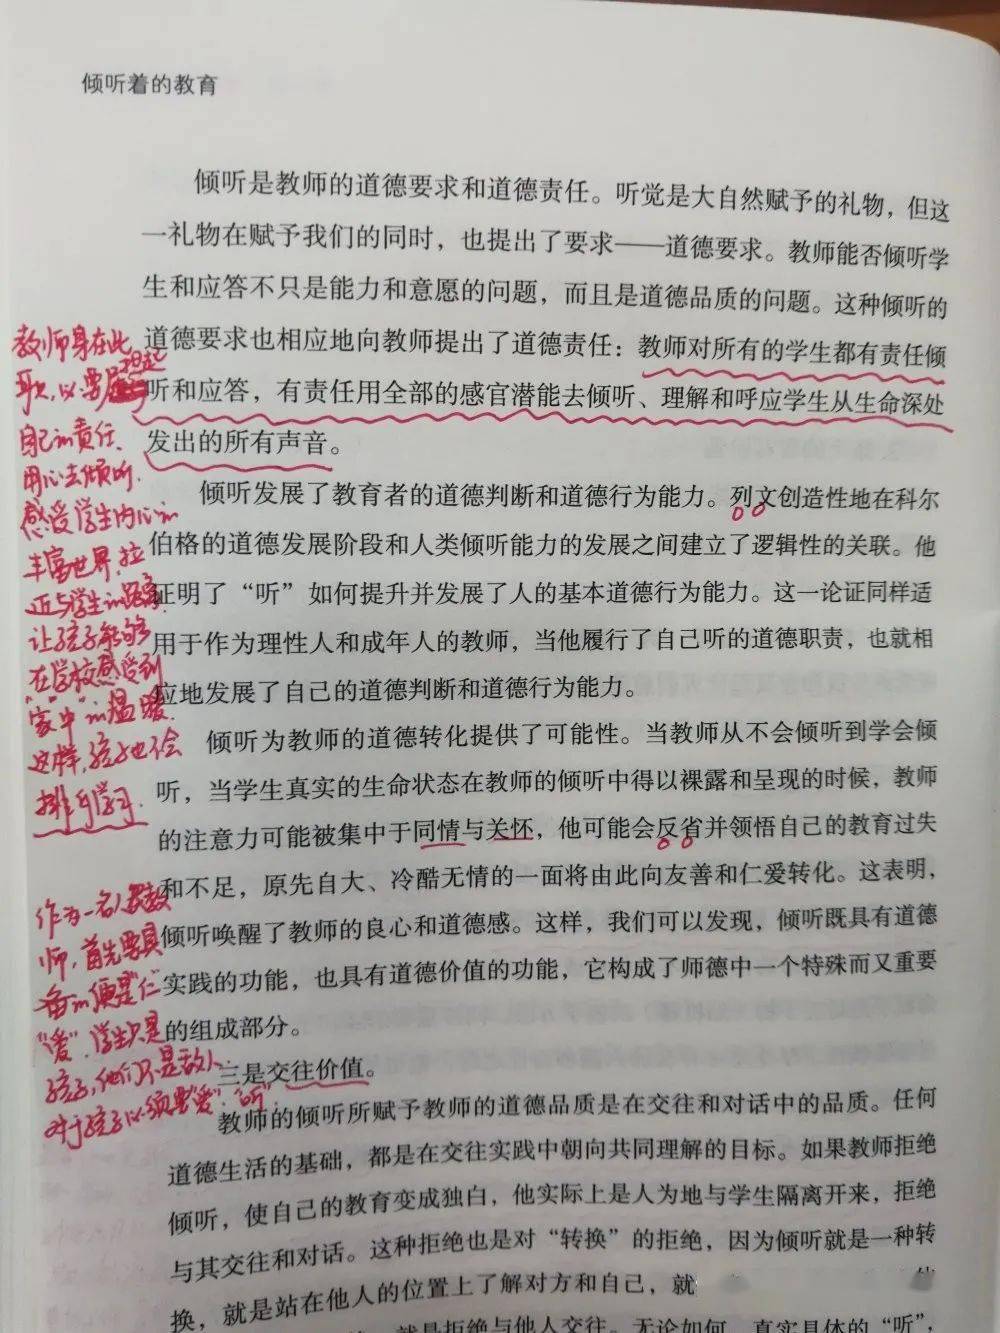 倾听着的教育
倾听是教师的道德要求和道德责任。听觉是大自然赋予的礼物，但这
一礼物在赋予我们的同时，也提出了要求——道德要求。教师能否倾听学
生和应答不只是能力和意愿的问题，而且是道德品质的问题。这种倾听的
道德要求也相应地向教师提出了道德责任：教师对所有的学生都有责任倾
听和应答，有责任用全部的感官潜能去倾听、理解和呼应学生从生命深处
发出的所有声音。
倾听发展了教育者的道德判断和道德行为能力。列文创造性地在科尔
伯格的道德发展阶段和人类倾听能力的发展之间建立了逻辑性的关联。他
证明了“听”如何提升并发展了人的基本道德行为能力。这一论证同样适
用于作为理性人和成年人的教师，当他履行了自己听的道德职责，也就相
应地发展了自己的道德判断和道德行为能力。
倾听为教师的道德转化提供了可能性。当教师从不会倾听到学会倾
听，当学生真实的生命状态在教师的倾听中得以裸露和呈现的时候，教师
的注意力可能被集中于同情与关怀，他可能会反省并领悟自己的教育过失
和不足，原先自大、冷酷无情的一面将由此向友善和仁爱转化。这表明，
倾听唤醒了教师的良心和道德感。这样，我们可以发现，倾听既具有道德
实践的功能，也具有道德价值的功能，它构成了师德中一个特殊而又重要
的组成部分。
三是交往价值。
教师的倾听所赋予教师的道德品质是在交往和对话中的品质。任何
道德生活的基础，都是在交往实践中朝向共同理解的目标。如果教师拒绝
倾听，使自己的教育变成独白，他实际上是人为地与学生隔离开来，拒绝
与其交往和对话。这种拒绝也是对“转换”的拒绝，因为倾听就是一种转
换，就是站在他人的位置上了解对方和自己，就
就是拒绝与他人交往。无论如何，真实具体的“听”，
教师身在此
职，必要担起
自己的责任、
用心去倾听.
感受学生内心的
丰富世界，拉
近与学生的距离.
让孩子能够
在学校感受到
“家中”的温暖.
这样，孩子也不会
排斥学习.
作为一名人民教
师，首先要具
备的便是“仁
“爱”.学生只是
孩子，他们不是敌人.
对于孩子必须要“爱”“听”